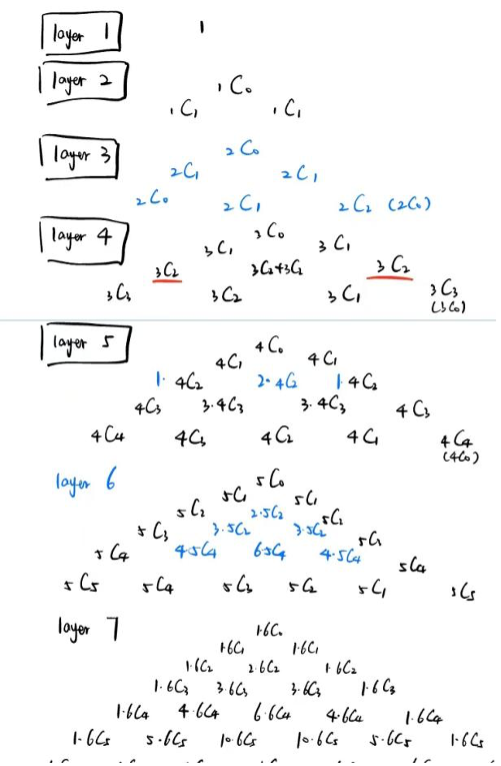 layer 1 1
layer 2 1C0
1C1 1C1
layer 3 2C0
2C1 2C1
2C0 2C1 2C2 (2C0)
layer 4 3C0
3C1 3C1
3C2 3C2+3C2 3C2
3C3 3C2 3C1 3C3
(3C0)
layer 5 4C0
4C1 4C1
1· 4C2 2·4C2 1·4C2
4C3 3·4C3 3·4C3 4C3
4C4 4C3 4C2 4C1 4C4
(4C0)
layer 6 5C0
5C1 5C1
5C2 2·5C2 5C2
5C3 3·5C2 3·5C2 5C1
5C4 4·5C4 6·5C4 4·5C4 5C4
5C5 5C4 5C3 5C2 5C1 5C5
layer 7 1·6C0
1·6C1 1·6C1
1·6C2 2·6C2 1·6C2
1·6C3 3·6C3 3·6C3 1·6C3
1·6C4 4·6C4 6·6C4 4·6C4 1·6C4
1·6C5 5·6C5 10·6C5 10·6C5 5·6C5 1·6C5